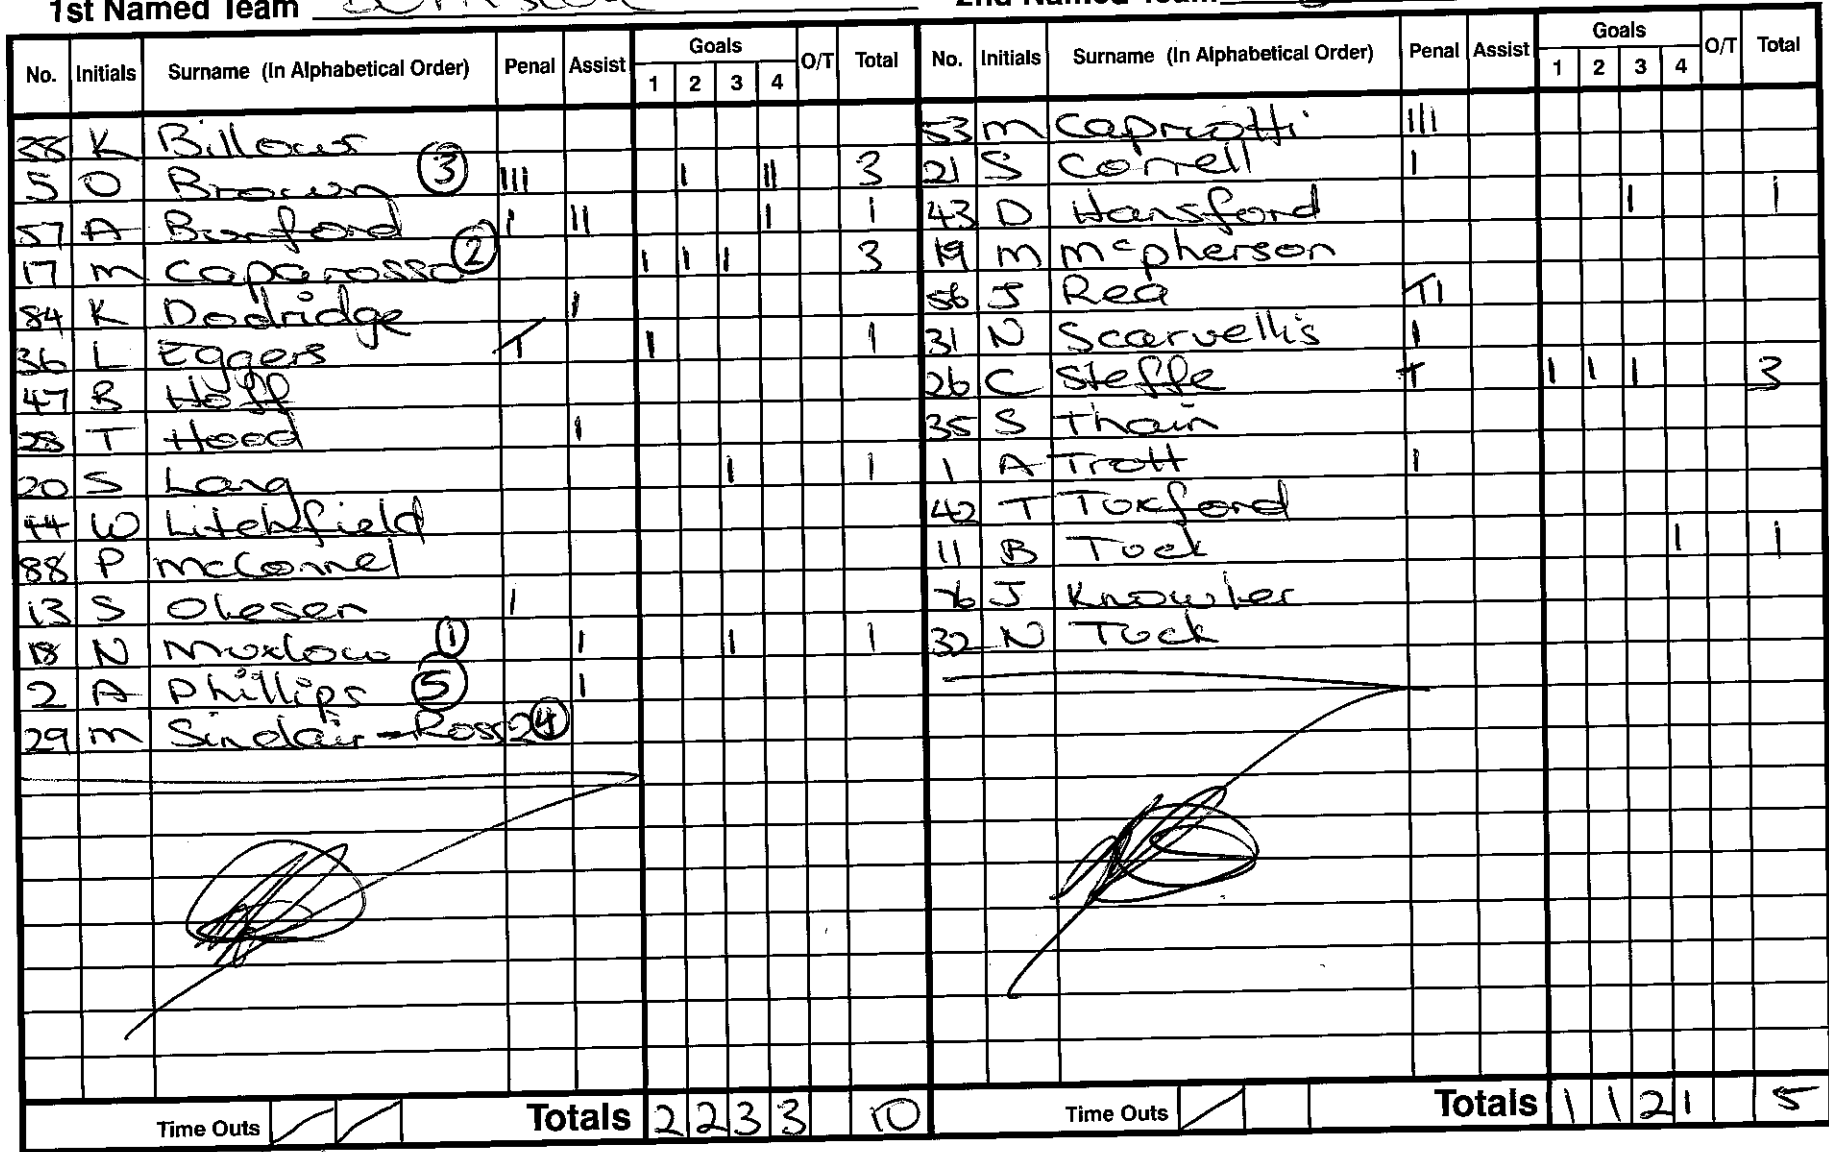 1st Named Team
2nd Named Team
No. Initials Surname (In Alphabetical Order) Penal Assist Goals 1 2 3 4 O/T Total
38 K Billows
5 O Brown ③ III I II 3
57 A Bunford I II I 1
17 M Caparosso ② I I I 3
84 K Dodridge I
36 L Eggers T I 1
47 B Hoff
28 T Hood I
20 S Lang I 1
44 W Litchfield
88 P McConnel
13 S Olesen I
18 N Moxlow ① I I 1
2 A Phillips ⑤ I
29 M Sinclair-Ross ④
Time Outs / / Totals 2 2 3 3 10
No. Initials Surname (In Alphabetical Order) Penal Assist Goals 1 2 3 4 O/T Total
53 M Capriotti III
21 S Correll I
43 D Hansford I 1
19 M McPherson
56 J Rea TI
31 N Scarvellis I
26 C Steffe T I I I 3
35 S Thain
1 A Trott I
42 T Tuxford
11 B Tuck I 1
76 J Knowler
32 N Tuck
Time Outs / Totals 1 1 2 1 5